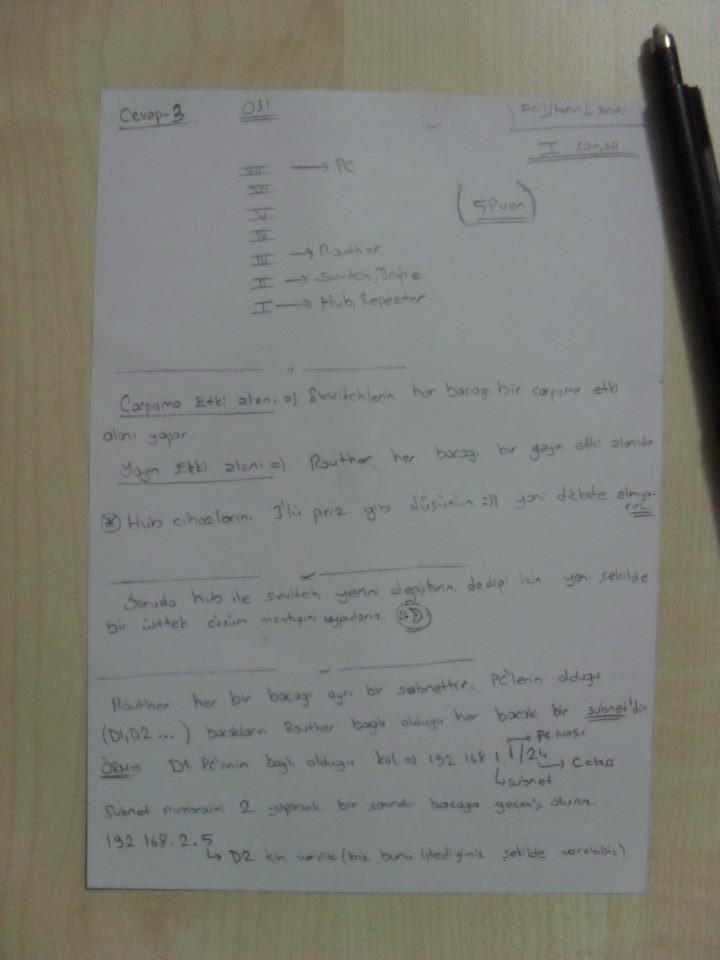 Cevap-3 OSI
I. sınıf
VII → PC
VI
(5 Puan)
V
IV
III → Routher
II → Switch,
I → Hub, Repeater
Çarpışma Etki alanı => Swwitchlerin her bacağı bir çarpışma etki
alanı yapar
Yayın Etki alanı => Routher her bacağı bir yayın etki alanıdır
* Hub cihazlarını 3'lü piriz gibi düşünün :)) yani dikkate almıyo-
ruz
Soruda hub ile swwitch yerini değiştirin dediği için yeni şekilde
bir üstteki çözüm mantığını uygularız
Routher her bir bacağı ayrı bir subnettir. PC'lerin olduğu
(D1, D2 ...) bacakların Routher bağlı olduğu her bacak bir subnet'dir
→ PC nosu
ÖRN => D1 PC'sinin bağlı olduğu kol => 192 168 1 1/24 → C class
↳ subnet
Subnet numarasını 2 yaparsak bir sonraki bacağa geçmiş oluruz.
192 168.2.5
↳ D2 için verdik (biz bunu istediğimiz şekilde verebiliriz)